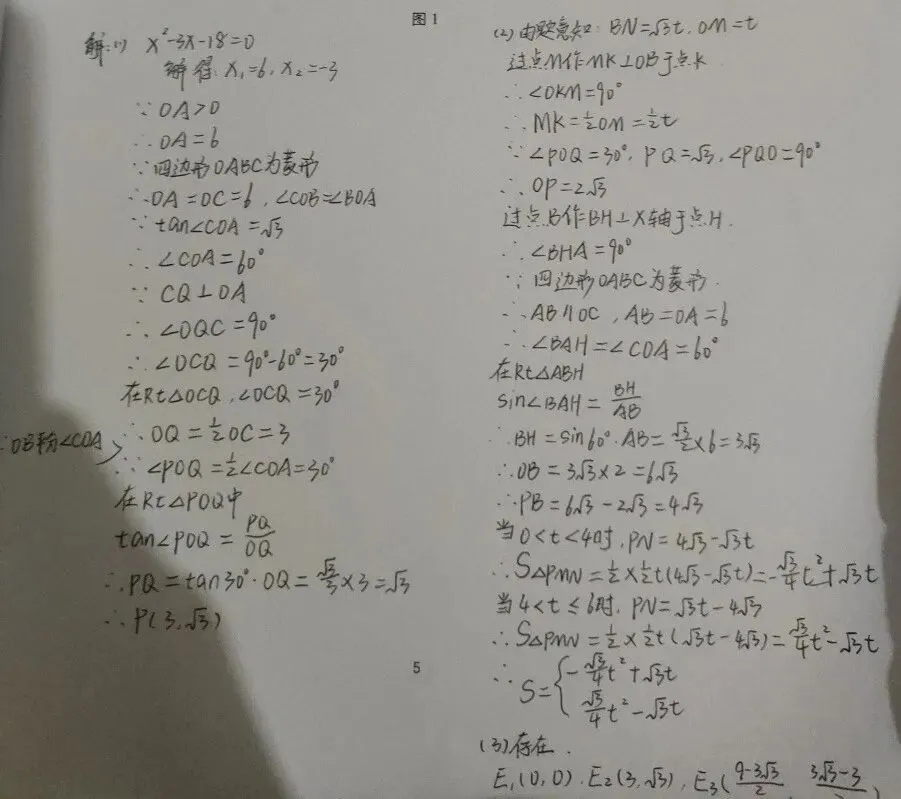 图1
解:(1) x²-3x-18=0
解得:x₁=6, x₂=-3
∵OA>0
∴OA=6
∵四边形OABC为菱形
∴OA=OC=6, ∠COB=∠BOA
∵tan∠COA=√3
∴∠COA=60°
∵CQ⊥OA
∴∠OQC=90°
∴∠OCQ=90°-60°=30°
在Rt△OCQ, ∠OCQ=30°
∴OQ=½OC=3
∵OB平分∠COA
∵∠POQ=½∠COA=30°
在Rt△POQ中
tan∠POQ=PQ/OQ
∴PQ=tan30°·OQ=√3/3×3=√3
∴P(3,√3)
5
(2)由题意知: BN=√3t, OM=t
过点M作MK⊥OB于点K
∴∠OKM=90°
∴MK=½OM=½t
∵∠POQ=30°, PQ=√3, ∠PQO=90°
∴OP=2√3
过点B作BH⊥X轴于点H.
∴∠BHA=90°
∵四边形OABC为菱形.
∴AB∥OC, AB=OA=6
∴∠BAH=∠COA=60°
在Rt△ABH
sin∠BAH=BH/AB
∴BH=sin60°·AB=√3/2×6=3√3
∴OB=3√3×2=6√3
∴PB=6√3-2√3=4√3
当0<t<4时, PN=4√3-√3t
∴S△PMN=½×½t(4√3-√3t)=-√3/4t²+√3t
当4<t≤6时, PN=√3t-4√3
∴S△PMN=½×½t(√3t-4√3)=√3/4t²-√3t
∴S={-√3/4t²+√3t
√3/4t²-√3t
(3)存在.
E₁(0,0). E₂(3,√3), E₃(9-3√3/2, 3√3-3